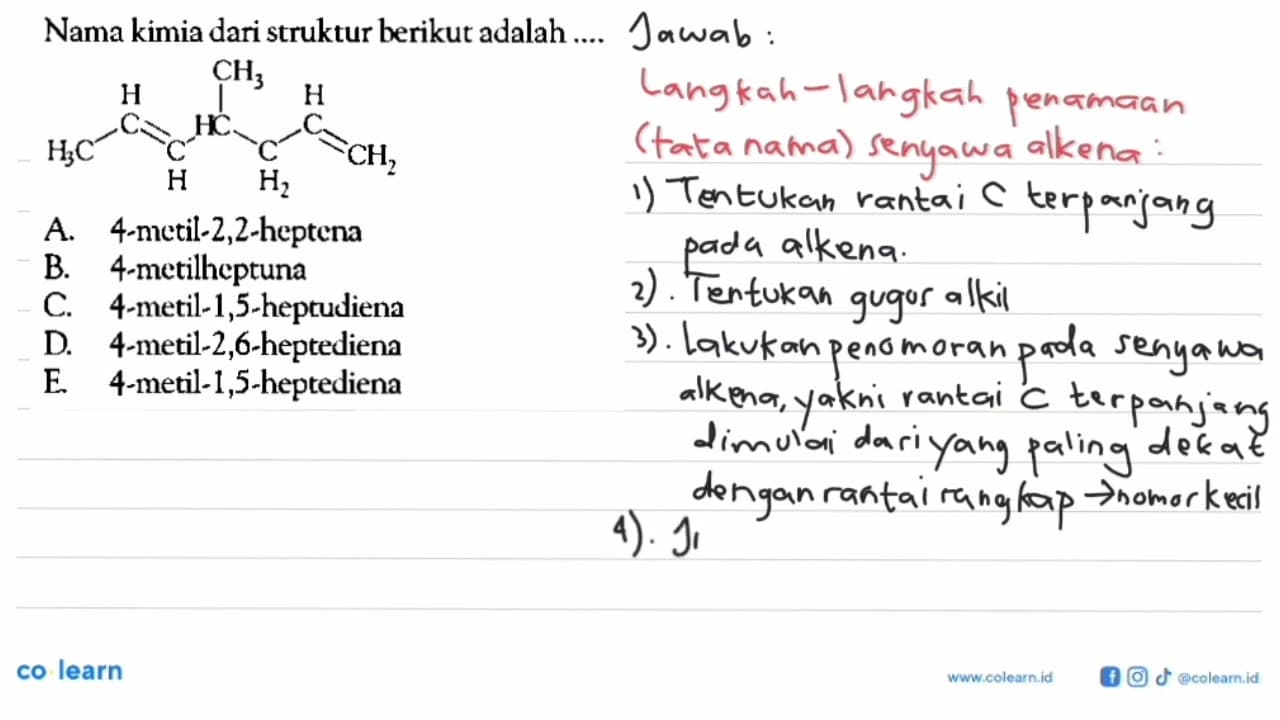 Nama kimia dari struktur berikut adalah ....
CH3
H H
C HC C
H3C C C CH2
H H2
A. 4-metil-2,2-heptena
B. 4-metilheptuna
C. 4-metil-1,5-heptudiena
D. 4-metil-2,6-heptediena
E. 4-metil-1,5-heptediena
Jawab :
Langkah-langkah penamaan
(tata nama) senyawa alkena :
1) Tentukan rantai C terpanjang
pada alkena.
2). Tentukan gugus alkil
3). Lakukan penomoran pada senyawa
alkena, yakni rantai C terpanjang
dimulai dari yang paling dekat
dengan rantai rangkap → nomor kecil
4). Ji
co learn
www.colearn.id
@colearn.id